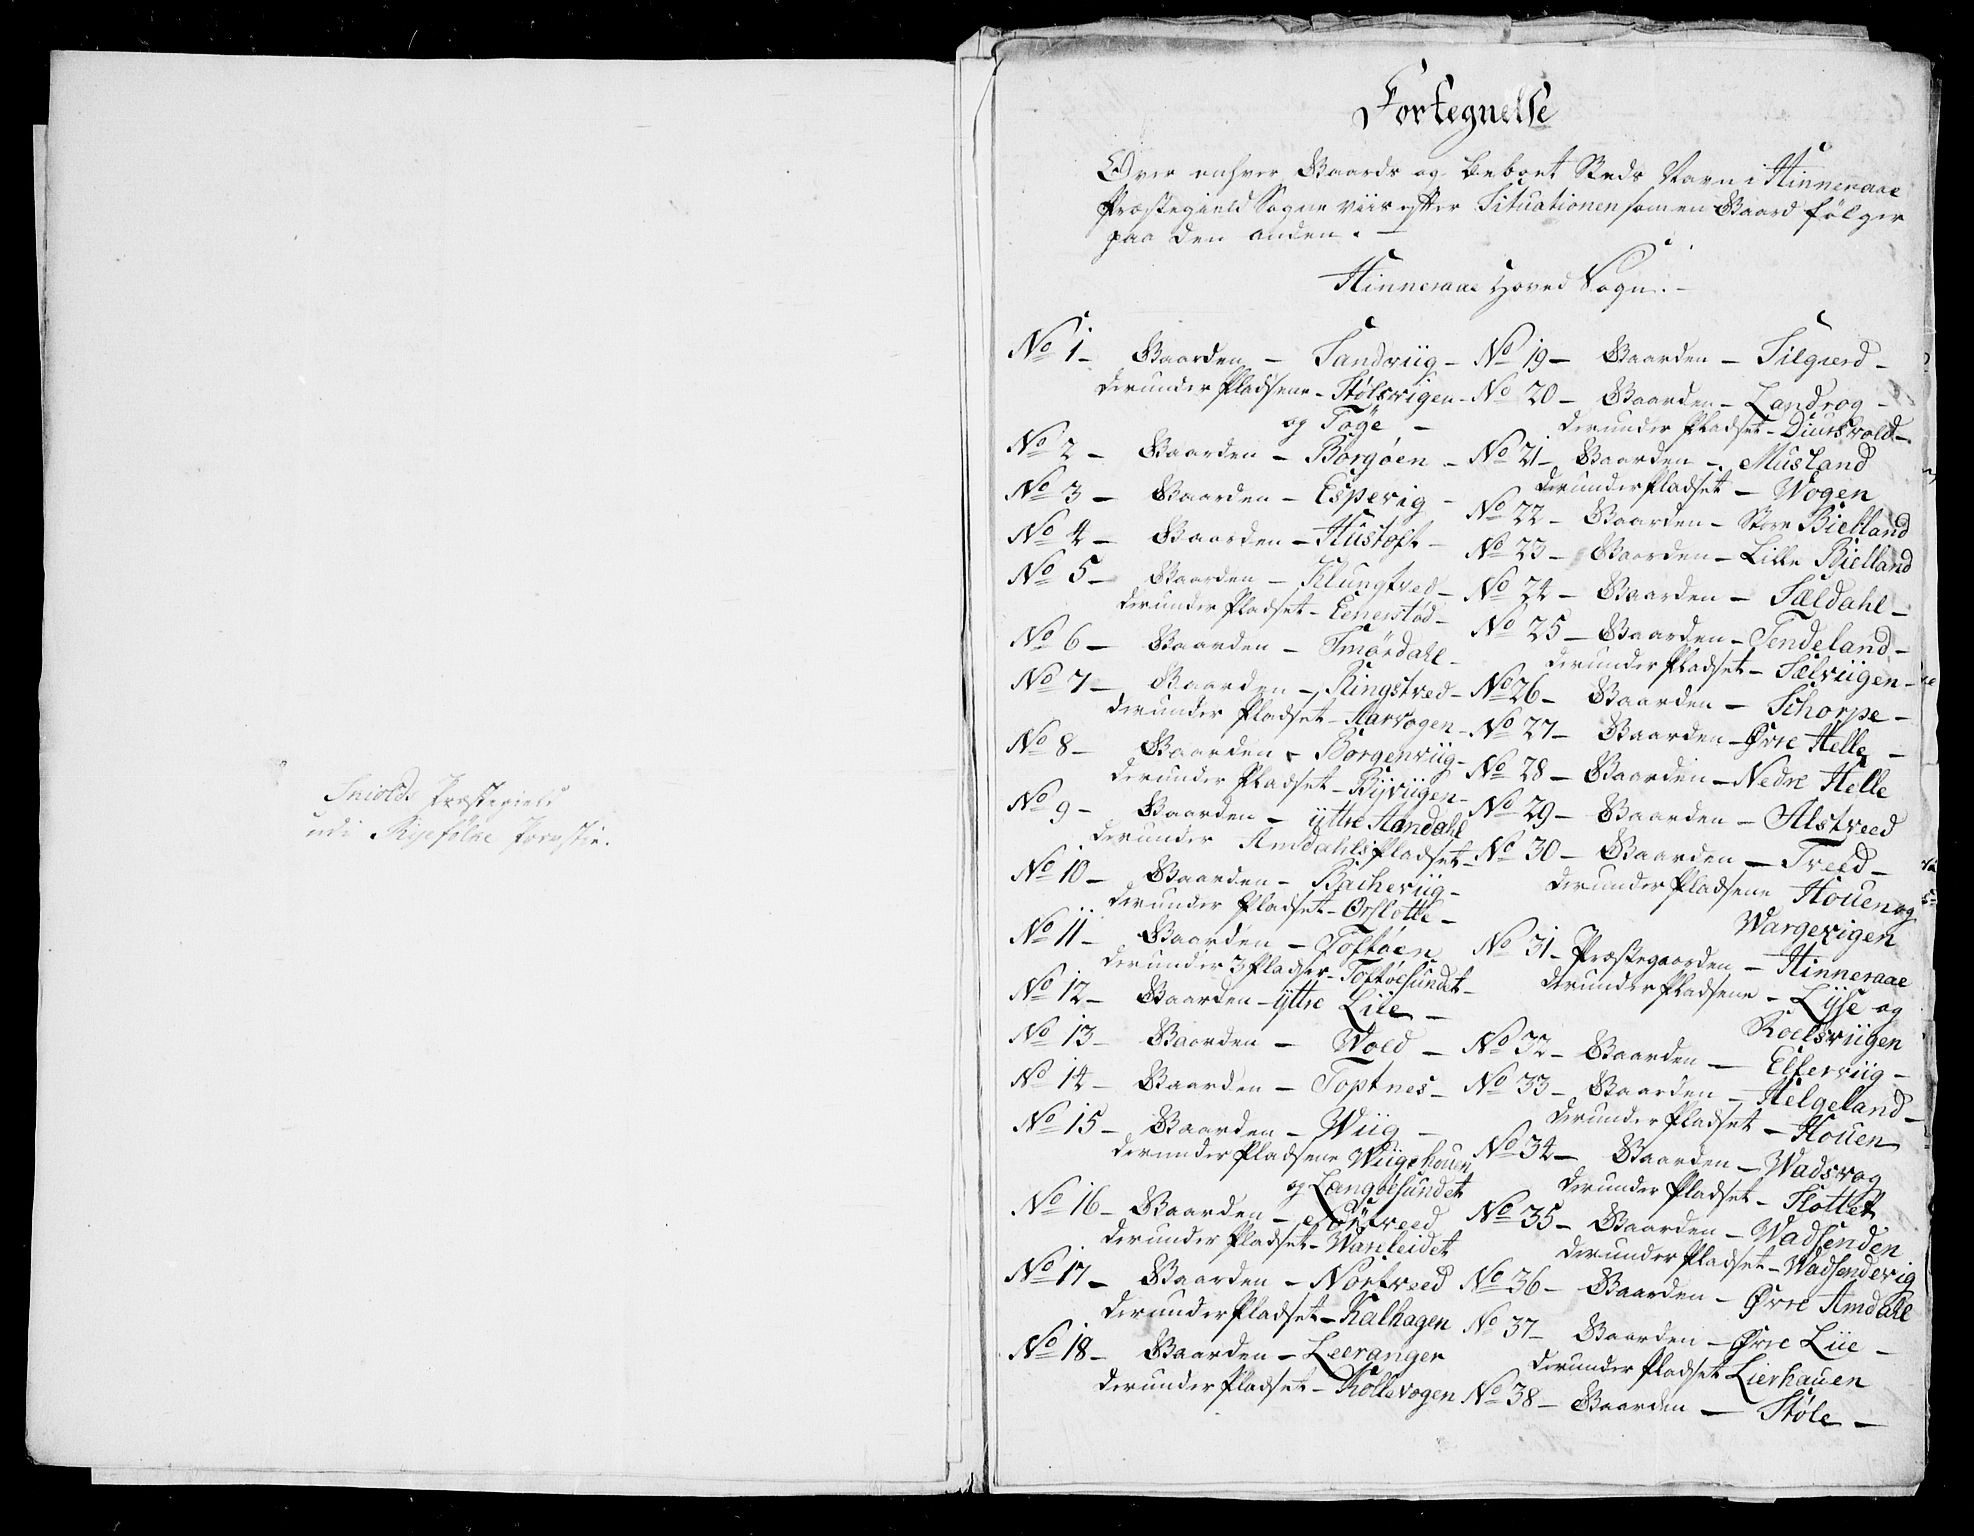 Præstegield
udi Ryefølke Provstie.
Fortegnelse
Over enhver Gaards og beboet Steds Navn i Hinneraae
Præstegield Sogne viis efter Situationen som en Gaard følger
paa den anden.
Hinneraae Hoved Sogn.
No 1 - Gaarden - Sandviig -
derunder Pladsene - Stølsvigen -
og Tøge -
No 2 - Gaarden - Borgøen -
No 3 - Gaarden - Espevig -
No 4 - Gaarden - Hustoft -
No 5 - Gaarden - Klungtved -
derunder Pladset - Eenerstød -
No 6 - Gaarden - Smørdahl -
No 7 - Gaarden - Ringstved -
derunder Pladset - Aarvogen -
No 8 - Gaarden - Borgenviig -
derunder Pladset - Byviigen -
No 9 - Gaarden - ÿttre Amdahl
derunder Amdahls Pladset -
No 10 - Gaarden - Bacheviig -
derunder Pladset - Orslotte -
No 11 - Gaarden - Toftøen
derunder 3 Pladser - Toftøesundet -
No 12 - Gaarden - ÿttre Liie -
No 13 - Gaarden - Wold -
No 14 - Gaarden - Toptnes -
No 15 - Gaarden - Wiig -
derunder Pladsene Wiigehouen
og Langøesundet
No 16 - Gaarden -
derunder Pladset - Wanleidet
No 17 - Gaarden - Nortveed
derunder Pladset - Kalhagen
No 18 - Gaarden - Leeranger
derunder Pladset - Kollevogen
No 19 - Gaarden - Silgierd -
No 20 - Gaarden - Landrog -
derunder Pladset - Diursvold -
No 21 - Gaarden - Musland
derunder Pladset - Wogen
No 22 - Gaarden - Store Bielland
No 23 - Gaarden - Lille Bielland
No 24 - Gaarden - Sældahl -
No 25 - Gaarden - Tendeland -
derunder Pladset - Sælviigen -
No 26 - Gaarden - Schorpe -
No 27 - Gaarden - Øvre Helle -
No 28 - Gaarden - Nedre Helle
No 29 - Gaarden - Alstveed
No 30 - Gaarden - Tveed -
derunder Pladsene Houen og
Wargevigen
No 31 - Præstegaarden - Hinneraae
derunder Pladsene - Lÿse og
Roelsviigen
No 32 - Gaarden - Elferviig -
No 33 - Gaarden - Helgeland -
derunder Pladset - Houen
No 34 - Gaarden - Wadsvog
derunder Pladset - Slottet
No 35 - Gaarden - Wadsenden
derunder Pladset - Wadsendevig
No 36 - Gaarden - Øvre Amdahl
No 37 - Gaarden - Øvre Liie -
derunder Pladset Lierhauen
No 38 - Gaarden - Støle -